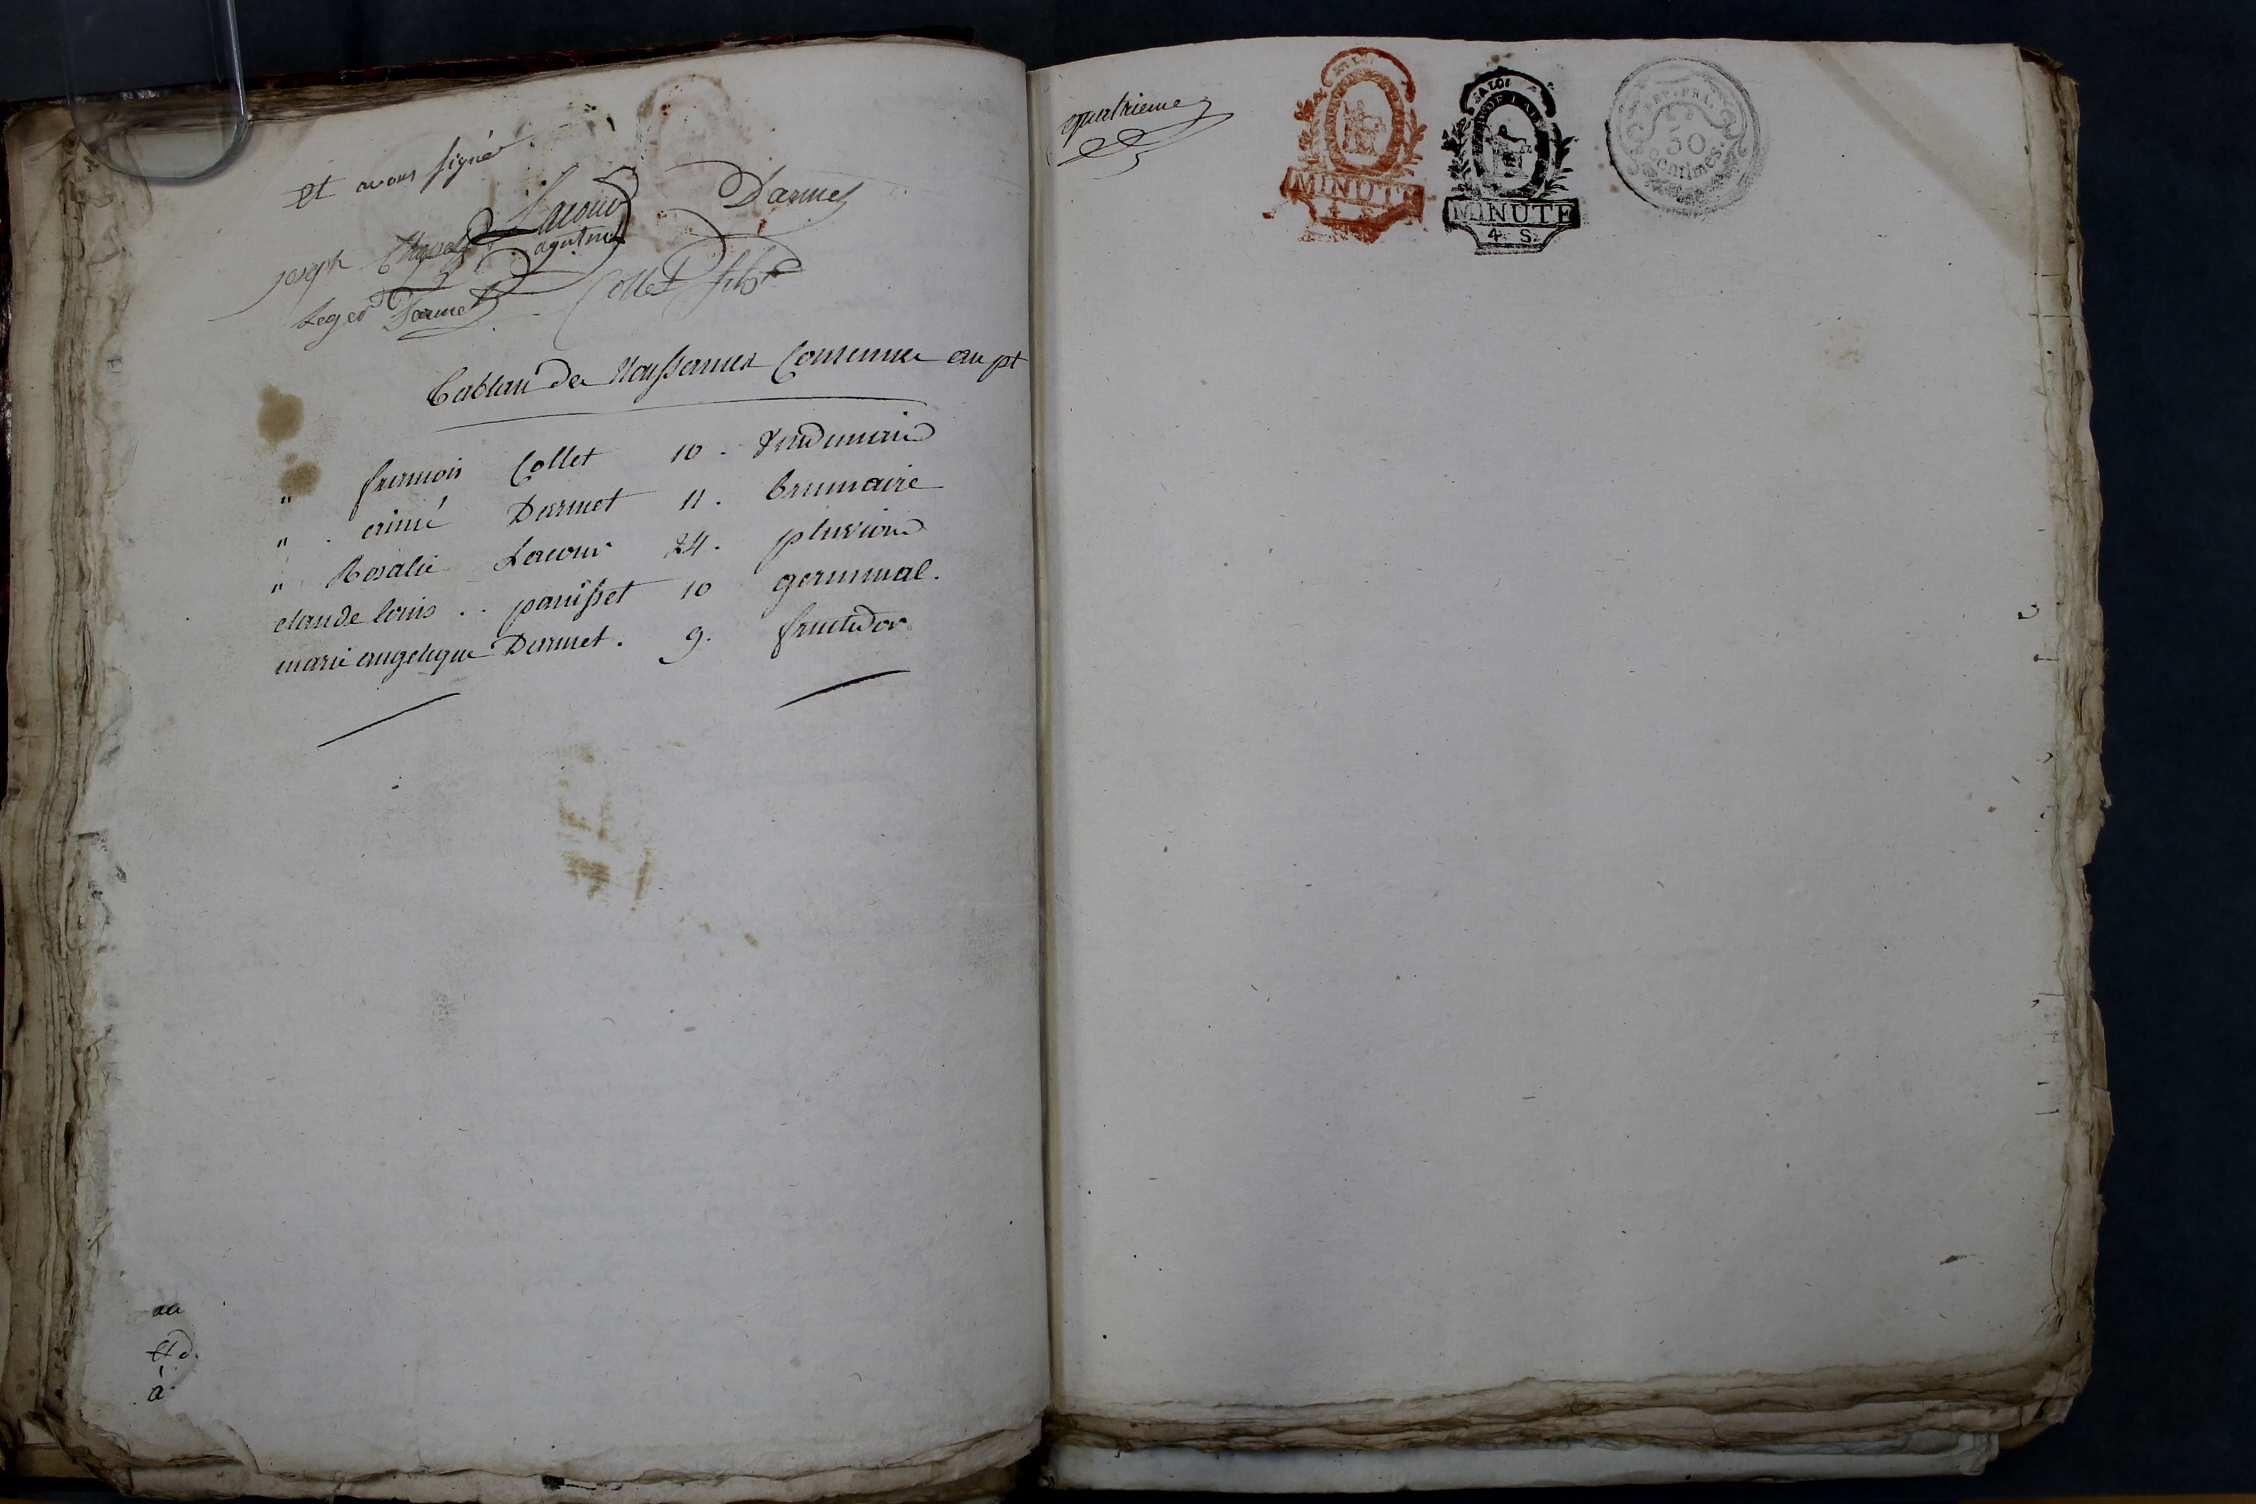 et avons signé
Lacour Darmet
joseph agutme
Leger Darmet Collet fils
Tableau de Naissances Contenues au pt
" francois Collet 10 . Vendemiaire
" aimé Darmet 11 . brumaire
" Rosalie Lacour 24 . pluviose
claude louis . . panisset 10 germinal .
marie angelique Darmet . 9 . fructidor
au
à
quatrieme
MINUTE
4 S
SALOI
MINUTE
4 S
REP. FRA.
50
centimes.